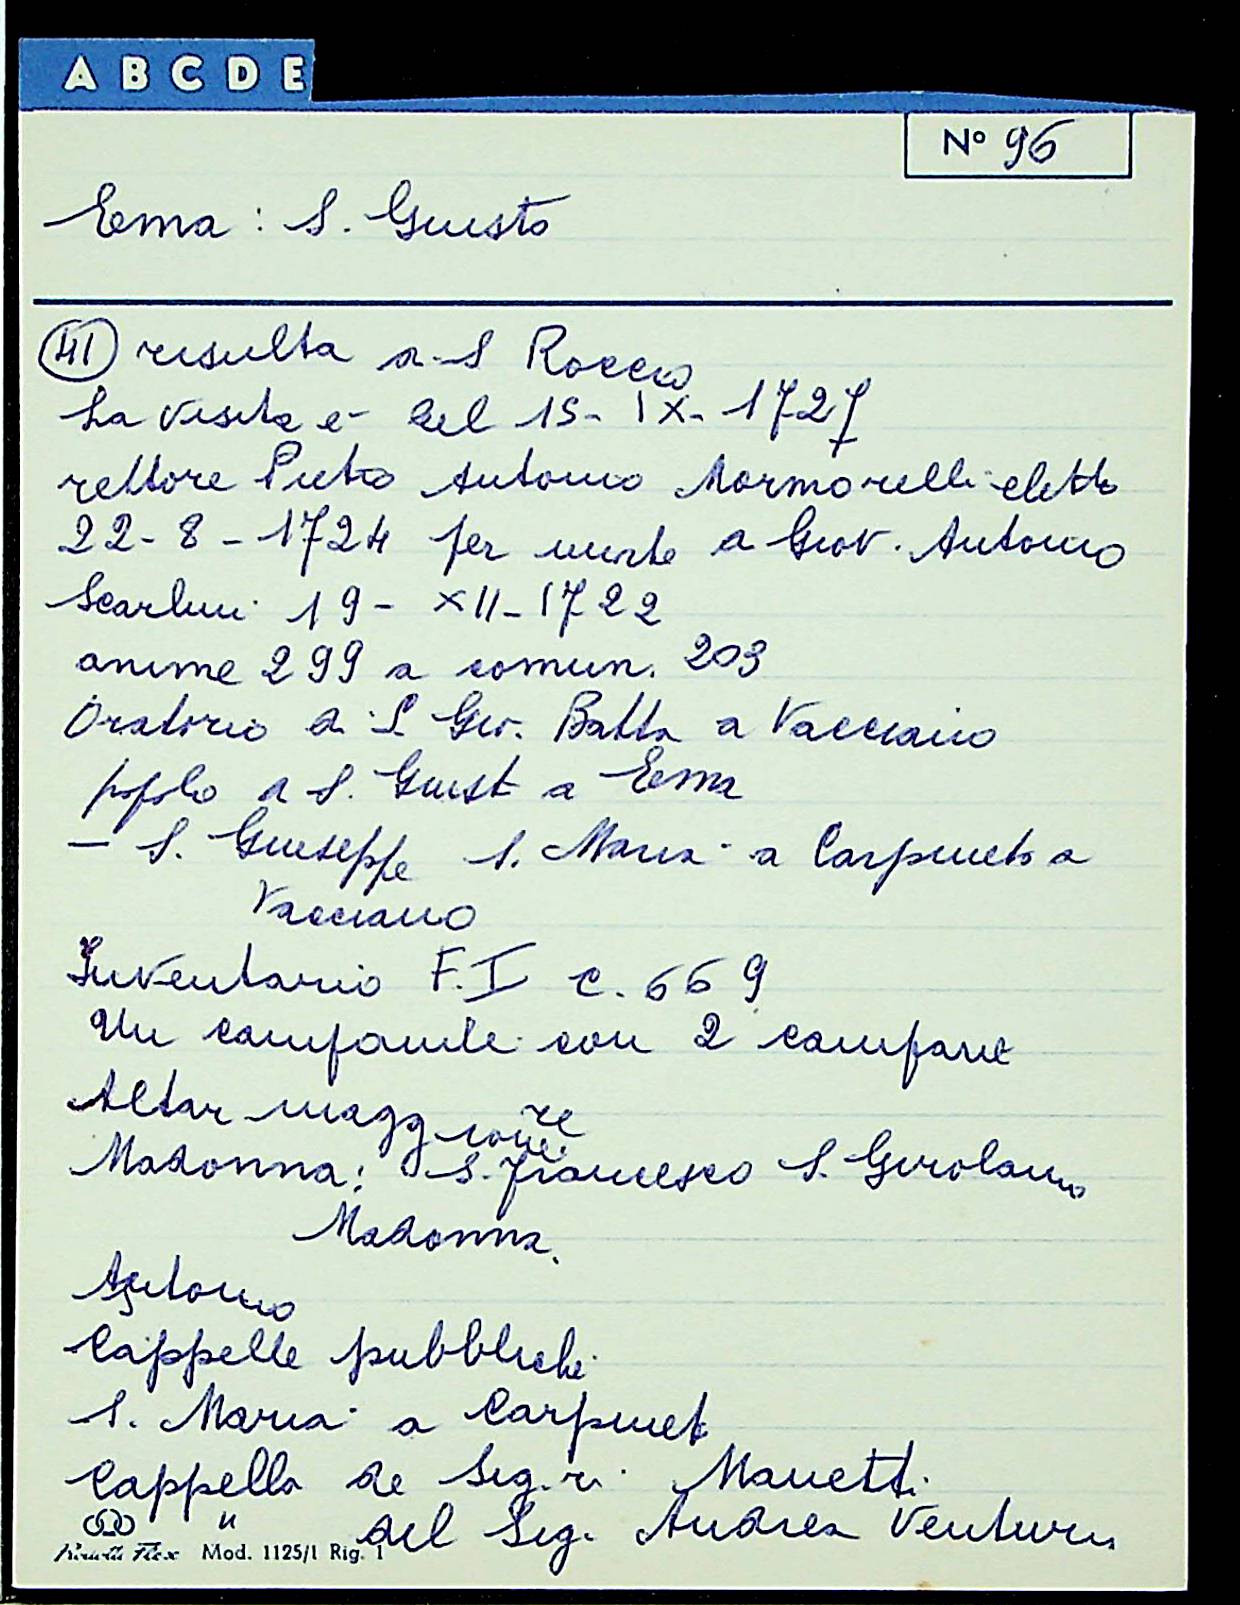 A B C D E
Nº 96
Ema: S. Giusto
41 risulta a S Rocco
La visita è del 15-IX-1727
rettore Pietro Antonio Mormorelli eletto
22-8-1724 per morte a Giov. Antonio
Scarlini 19-XII-1722
anime 299 a comun. 203
Oratorio a S Gio. Batta a Vacciano
popolo a S. Giust a Ema
— S. Giuseppe S. Maria a Carpineto a
Vacciano
Inventario F.I c. 669
Un campanile con 2 campane
Altar maggiore
Madonna: S. Francesco S. Girolamo
Madonna.
Antonio
Cappelle pubbliche
S. Maria a Carpinet
Cappella de Sig.ri Manetti
" del Sig. Andrea Venturi
Mod. 1125/1 Rig. 1